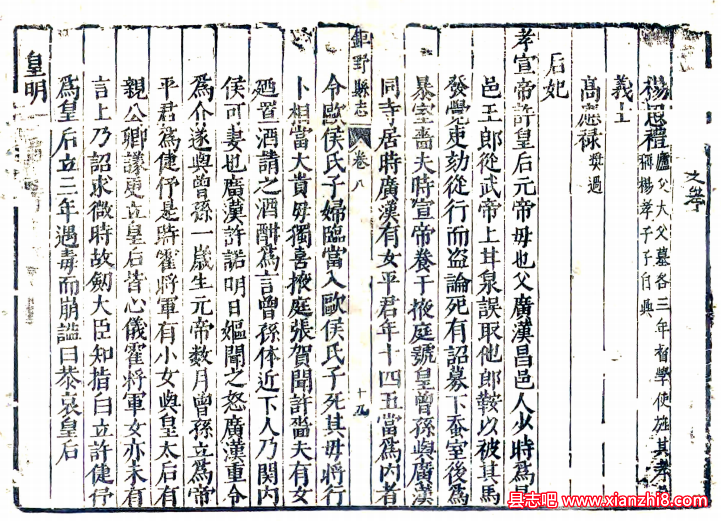 楊思禮 廬父大父墓各三年督學使旌其孝
稱楊孝子子自興
義士
高應祿 奬過
后妃
孝宣帝許皇后元帝毋也父廣漢昌邑人少時爲昌
邑王郎從武帝上甘泉誤取他郎鞍以被其馬
發覺吏劾從行而盜論死有詔募下蚕室後爲
暴室嗇夫時宣帝養于掖庭號皇曾孫與廣漢
同寺居時廣漢有女平君年十四五當爲内者
鉅野縣志 卷八 十九
令歐侯氏子婦臨當入歐侯氏子死其毋將行
卜相當大貴毋獨喜掖庭張賀聞許嗇夫有女
廼置酒請之酒酣爲言曾孫体近下人乃関内
侯可妻也廣漢許諾明日嫗聞之怒廣漢重令
爲介遂與曾孫一歲生元帝数月曾孫立爲帝
平君爲倢伃是時霍將軍有小女與皇太后有
親公卿議更立皇后皆心儀霍將軍女亦未有
言上乃詔求微時故劒大臣知指白立許倢伃
爲皇后立三年遇毒而崩謚曰恭哀皇后
皇明
县志吧 www.xianzhi8.com